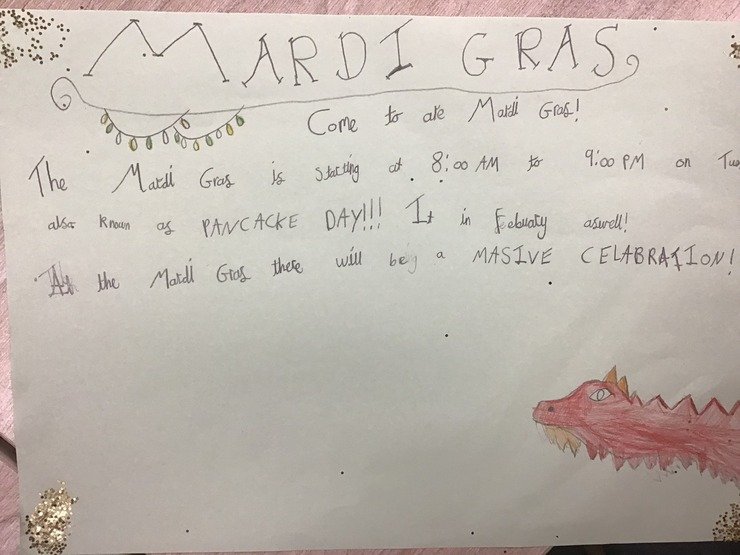 MARDI GRAS
Come to are Mardi Gras!
The Mardi Gras is starting at 8:00 AM to 9:00 PM on Tue
also known as PANCACKE DAY!!! It in Febuaty aswell!
At the Mardi Gras there will be a MASIVE CELABRATION!